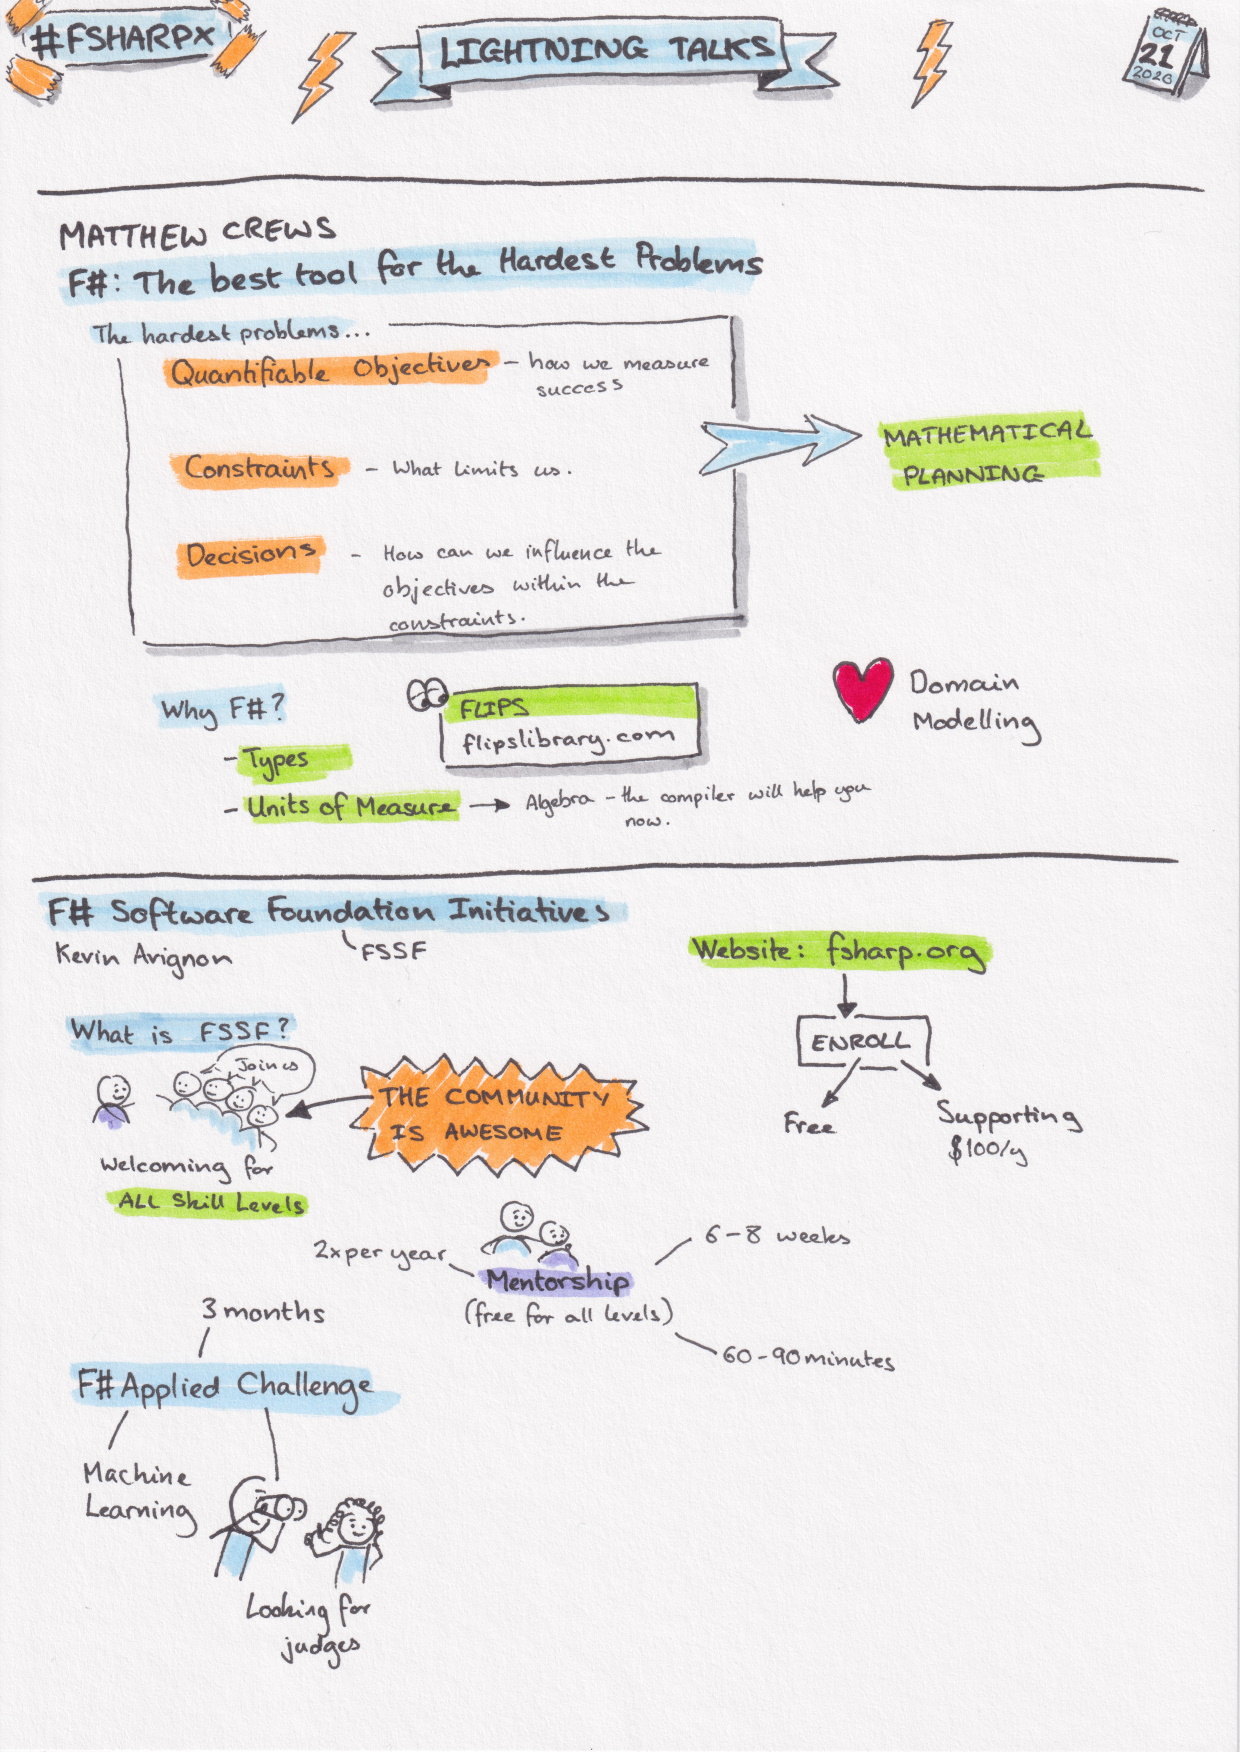 #FSHARPX
LIGHTNING TALKS
OCT
21
2020
MATTHEW CREWS
F#: The best tool for the Hardest Problems
The hardest problems...
Quantifiable Objectives - how we measure
success
Constraints - What limits us.
Decisions - How can we influence the
objectives within the
constraints.
MATHEMATICAL
PLANNING
Why F#?
- Types
- Units of Measure → Algebra - the compiler will help you
now.
FLIPS
flipslibrary.com
Domain
Modelling
F# Software Foundation Initiatives
Kevin Avignon
FSSF
Website: fsharp.org
ENROLL
Free
Supporting
$100/y
What is FSSF?
Join us
THE COMMUNITY
IS AWESOME
Welcoming for
ALL Skill Levels
2x per year
6-8 weeks
Mentorship
(free for all levels)
60-90 minutes
3 months
F# Applied Challenge
Machine
Learning
Looking for
judges